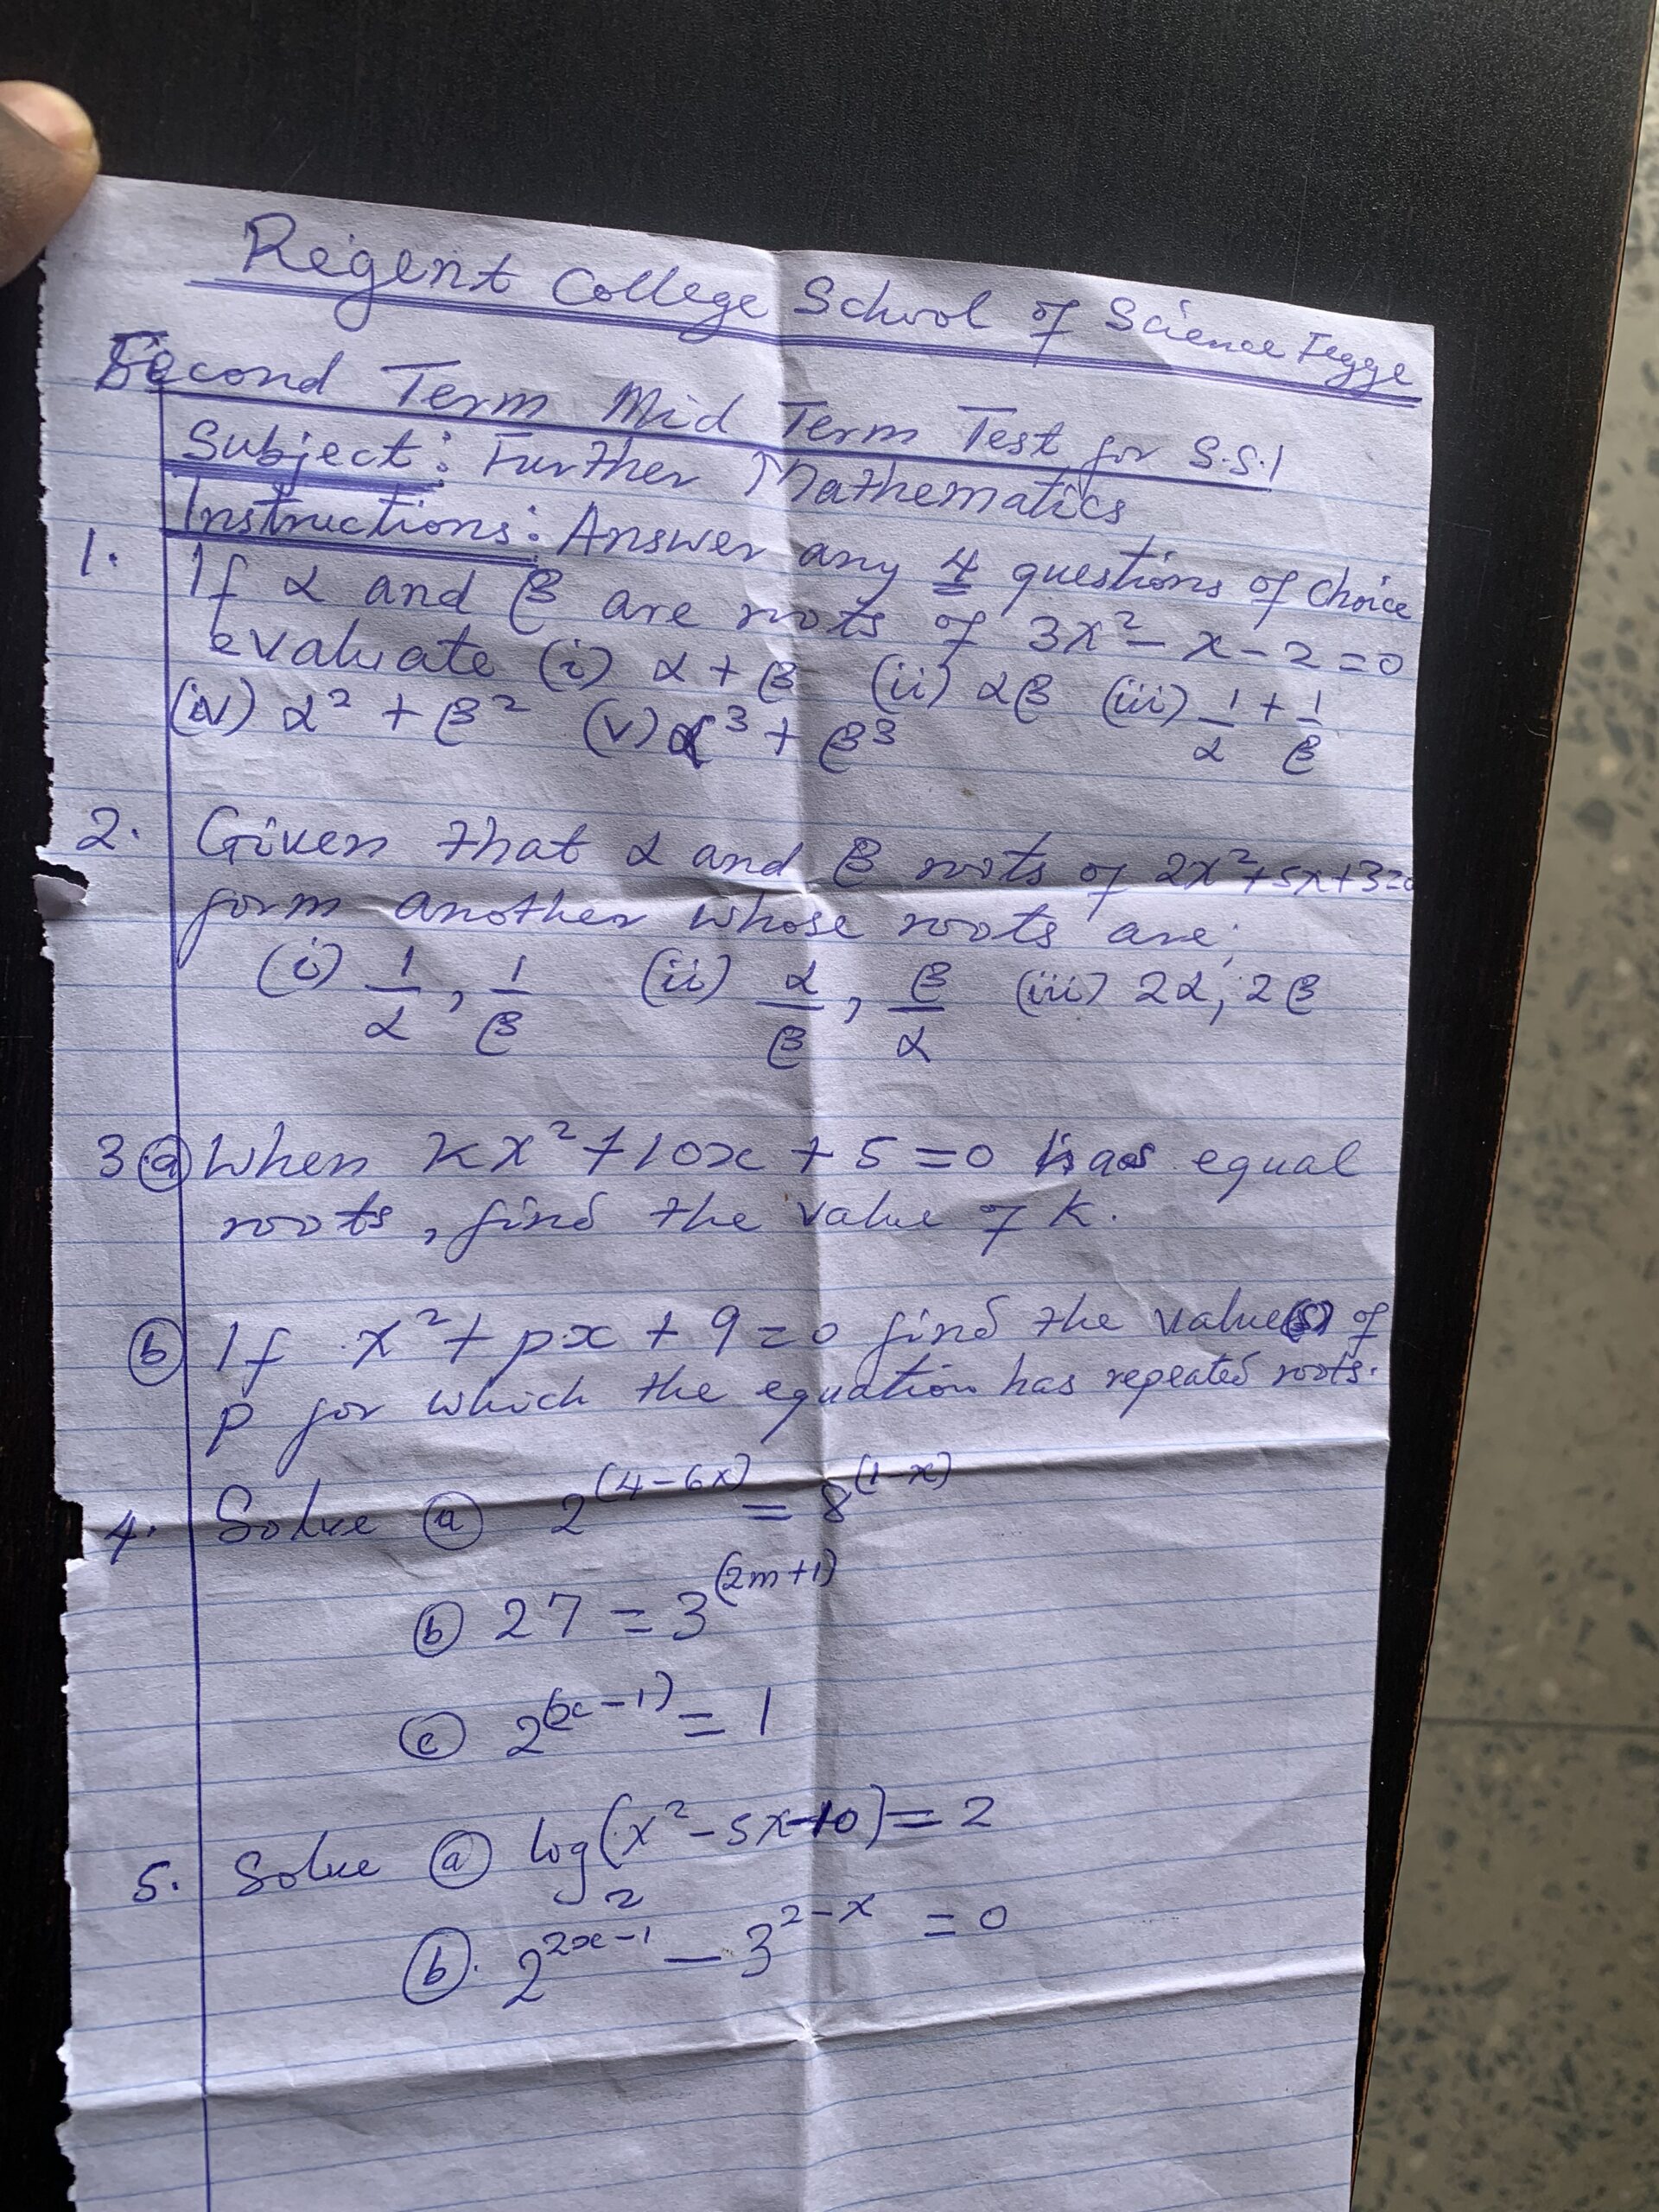 Regent College School of Science Fegge
Second Term Mid Term Test for S.S.1
Subject: Further Mathematics
Instructions: Answer any 4 questions of choice
1. If α and β are roots of 3x² - x - 2 = 0
evaluate (i) α + β (ii) αβ (iii) 1/α + 1/β
(iv) α² + β² (v) α³ + β³
2. Given that α and β roots of 2x²+5x+3=0
form another whose roots are;
(i) 1/α, 1/β (ii) α/β, β/α (iii) 2α, 2β
3 (a) When kx² + 10x + 5 = 0 has equal
roots, find the value of k.
(b) If x² + px + 9 = 0 find the value(s) of
p for which the equation has repeated roots.
4. Solve (a) 2^(4-6x) = 8^(1-x)
(b) 27 = 3^(2m+1)
(c) 2^(x-1) = 1
5. Solve (a) log₂(x² - 5x - 10) = 2
(b). 2^2x-1 - 3^2-x = 0